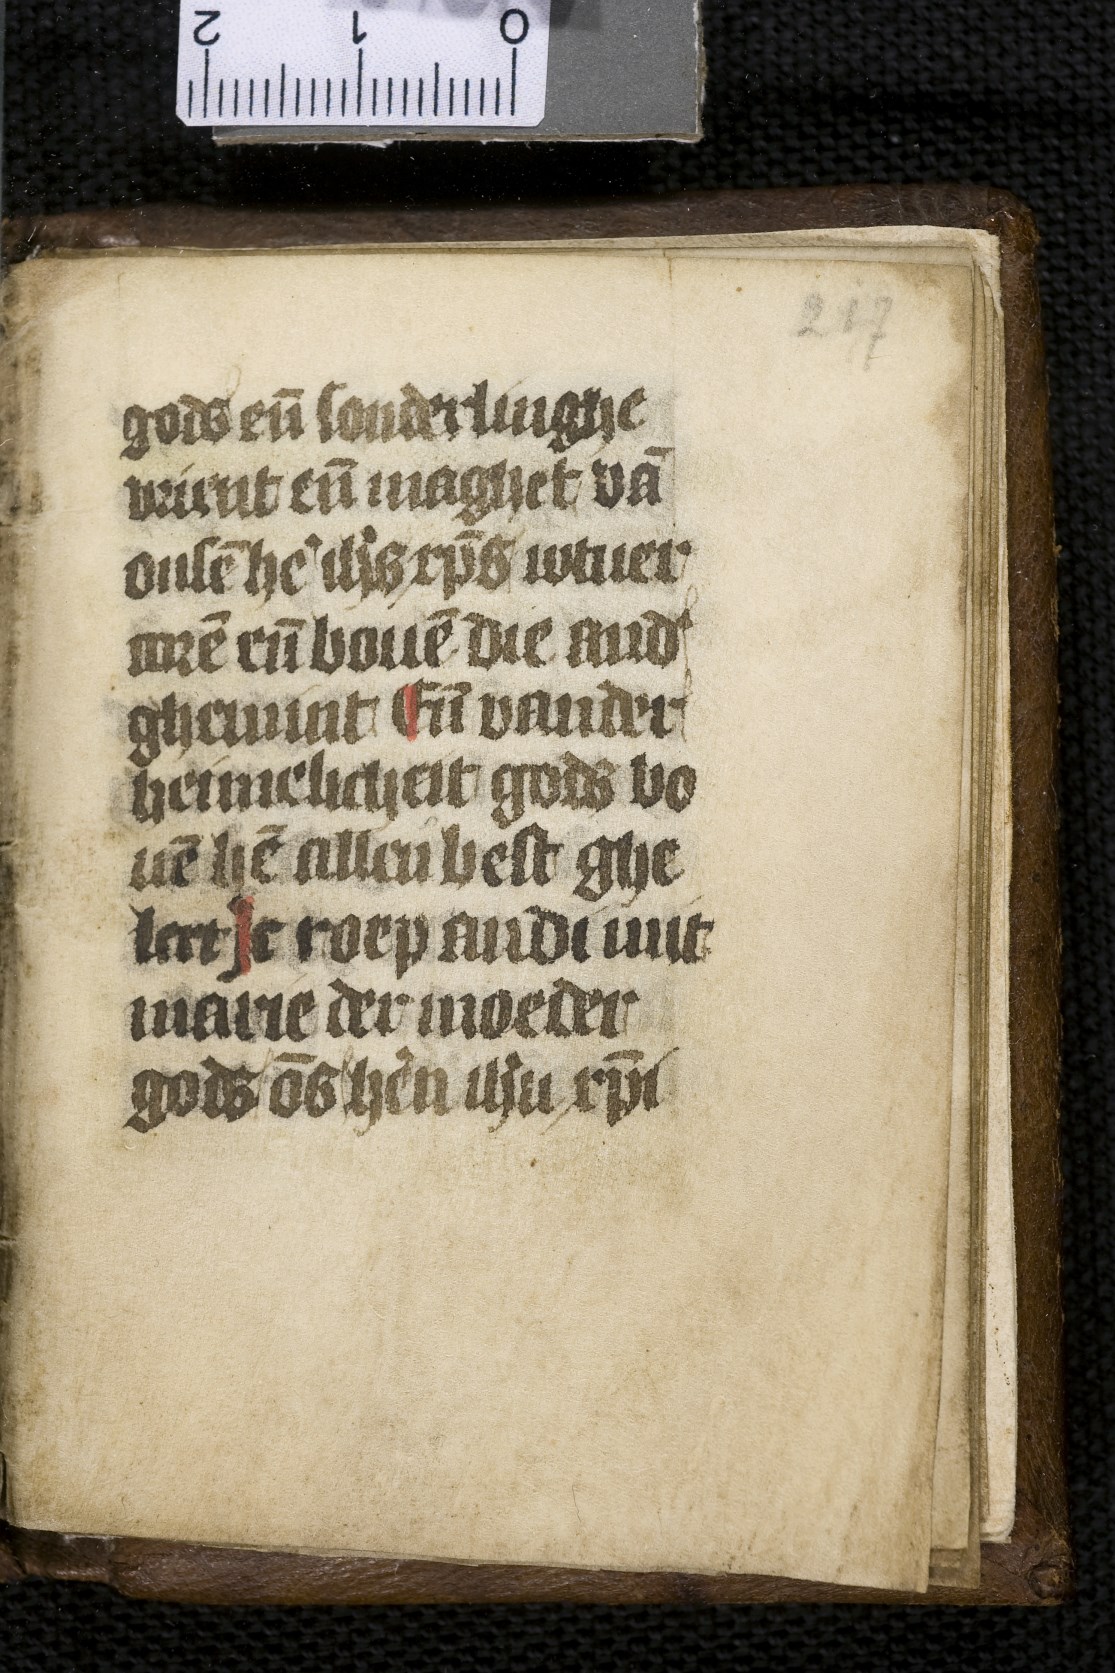 2 1 0
217
gods en̄ sonderlinghe
vrient en̄ maghet vā
onsē he' ih's xp̄s wtuer
en̄ bouē die and'
ghemint En̄ vander
heimelicheit gods bo
uē hē allen best ghe
leert Ic roep an di mit
marie der moeder
gods ōs he'n ih'u xp̄i